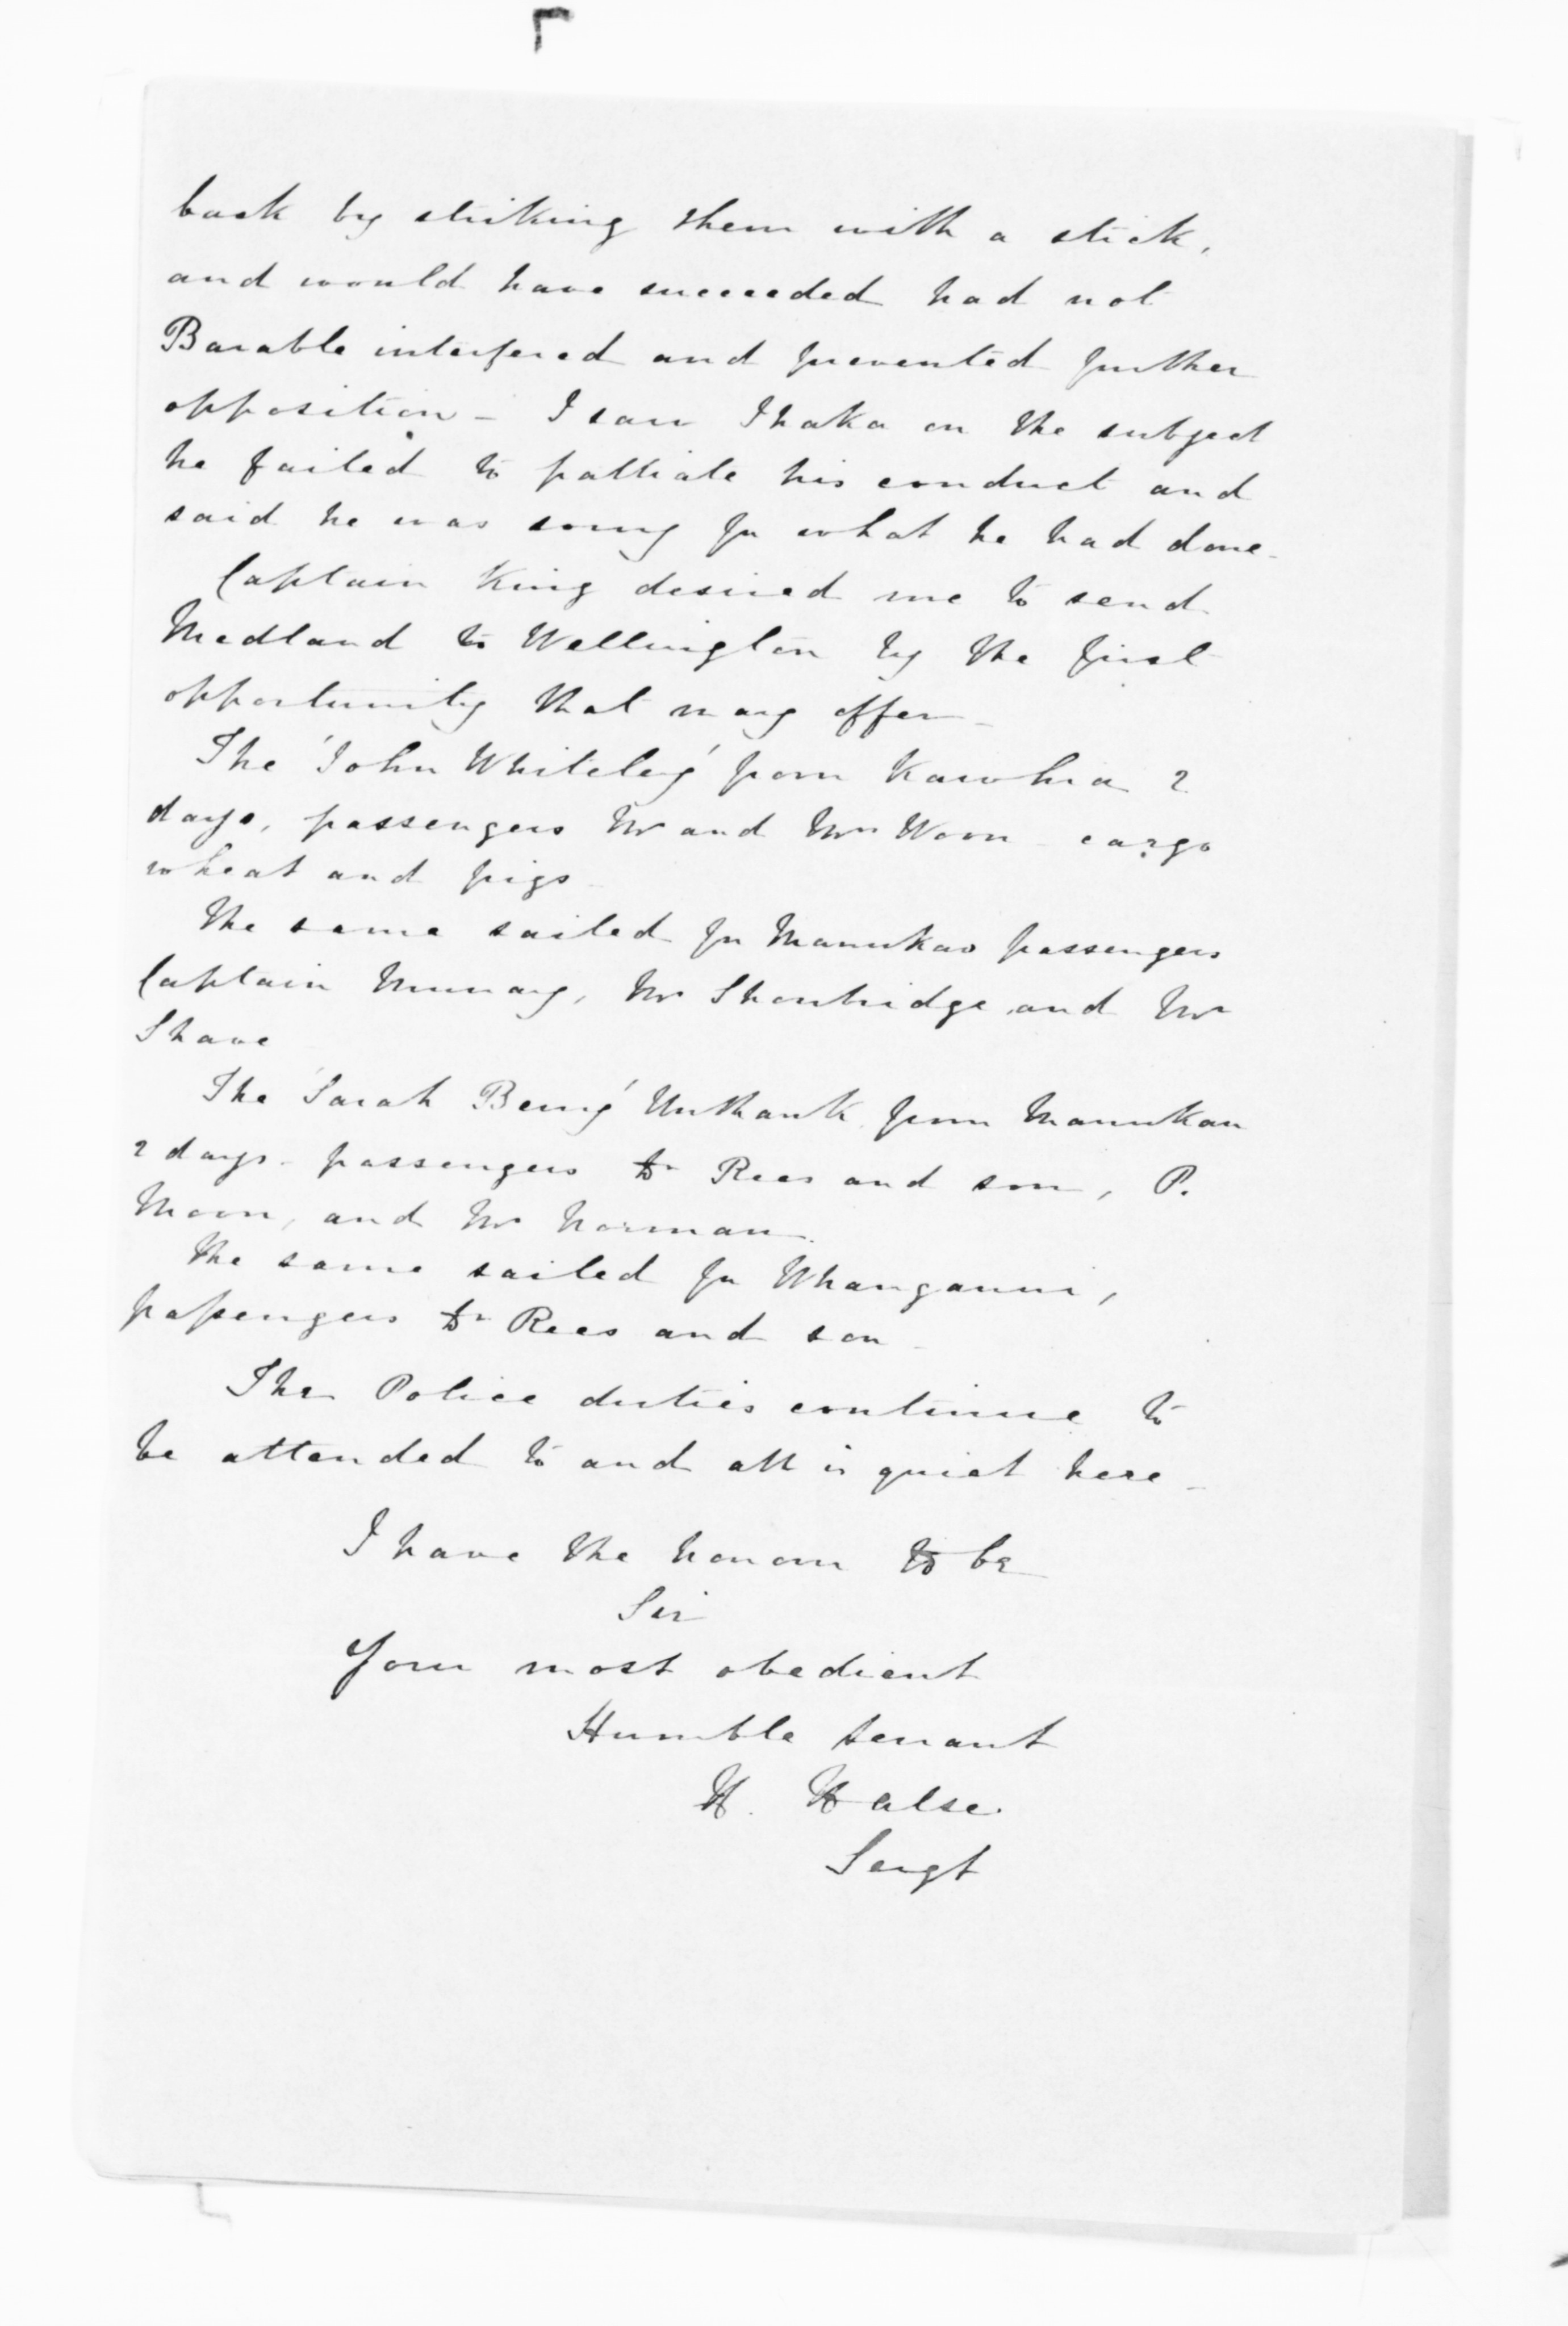 back by striking them with a stick,
and would have succeeded had not
Barable interfered and prevented further
opposition - I saw Ihaka on the subject
he failed to palliate his conduct and
said he was sorry for what he had done -
Captain King desired me to send
Medland to Wellington by the first
opportunity that may offer -
The 'John Whiteley' from Kawhia 2
days, passengers Mr and Mrs Woon - cargo
wheat and pigs -
The same sailed for Manukao passengers
Captain Murray, Mr Shoubridge and Mr
Shave
The 'Sarah Berry' Unthank from Manukau
2 days - passengers Dr Rees and son, P.
Moon, and Mr Norman.
The same sailed for Whanganui,
passengers Dr Rees and son -
The Police duties continue to
be attended to and all is quiet here -
I have the honour to be
Sir
Your most obedient
Humble servant
H. Halse.
Sergt